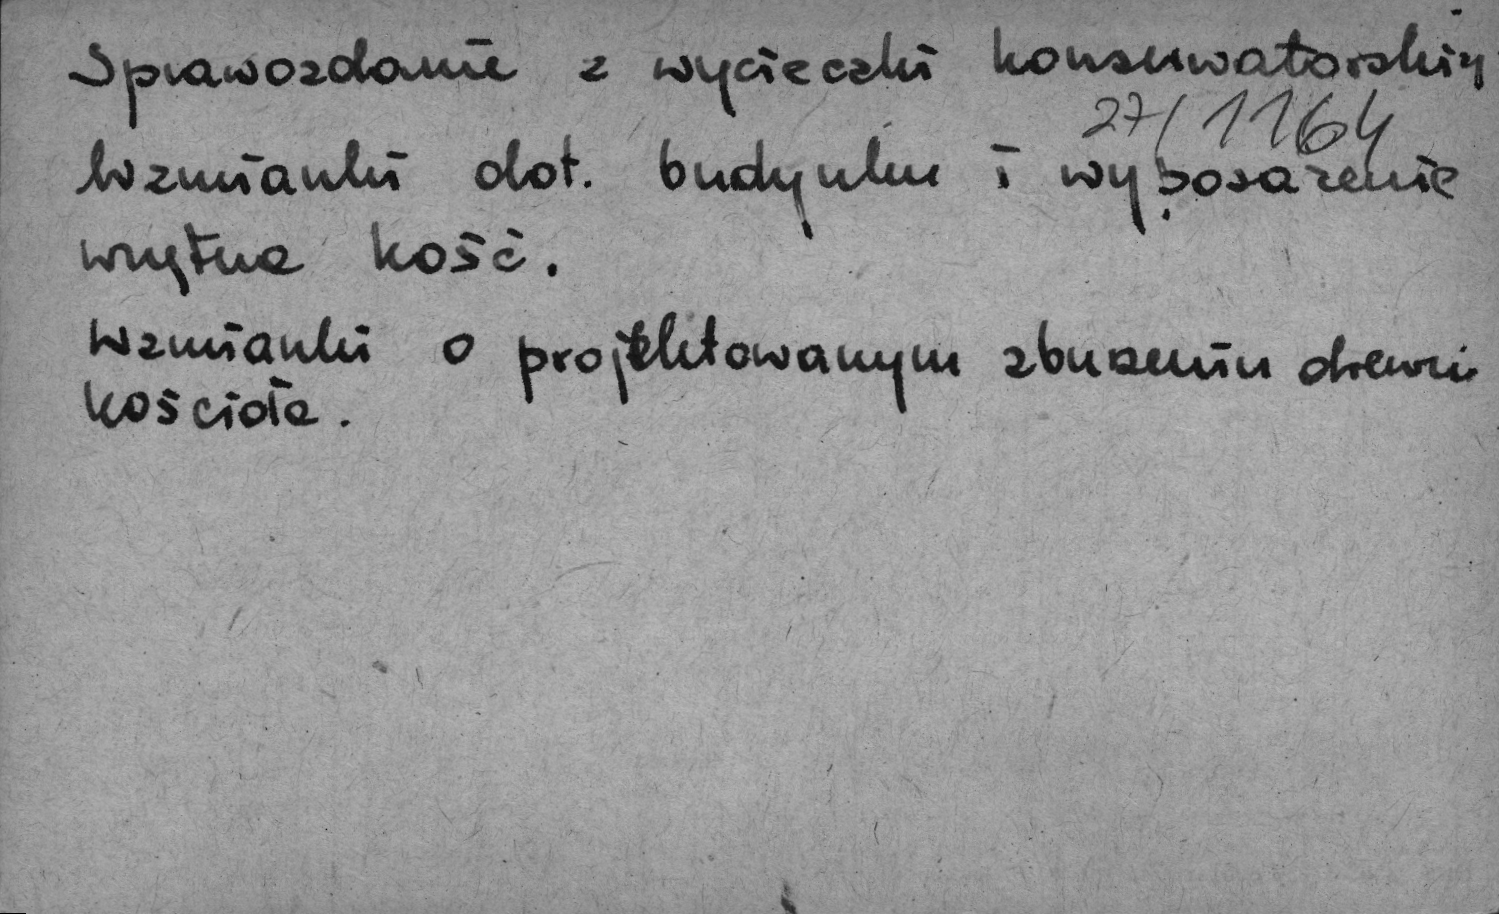 Sprawozdanie z wycieczki konserwatorskiej
27/1164
Wzmianki dot. budynku i wyposażenie
wnętrza kość.
Wzmianki o projektowanym zburzeniu drewni.
kościoła.